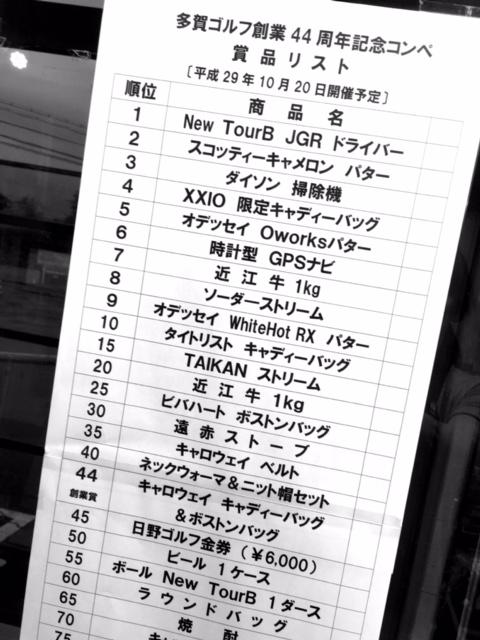 多賀ゴルフ創業44周年記念コンペ
賞品リスト
〔平成29年10月20日開催予定〕
順位 商品名
1 New TourB JGR ドライバー
2 スコッティーキャメロン パター
3 ダイソン 掃除機
4 XXIO 限定キャディーバッグ
5 オデッセイ Oworksパター
6 時計型 GPSナビ
7 近江牛 1kg
8 ソーダーストリーム
9 オデッセイ WhiteHot RX パター
10 タイトリスト キャディーバッグ
15 TAIKAN ストリーム
20 近江牛 1kg
25 ビバハート ボストンバッグ
30 遠赤ストーブ
35 キャロウェイ ベルト
40 ネックウォーマ＆ニット帽セット
44 キャロウェイ キャディーバッグ
創業賞 ＆ボストンバッグ
45 日野ゴルフ金券（￥6,000）
50 ビール 1ケース
55 ボール New TourB 1ダース
60 ラウンドバッグ
65 焼酎
70
75